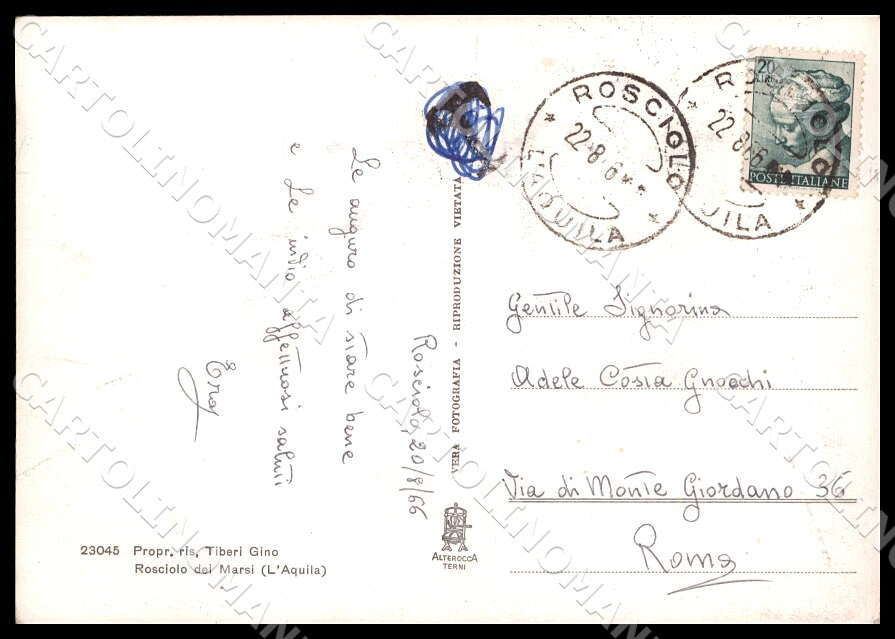 Rosciolo, 20/8/66
Le auguro di stare bene
e Le invio affettuosi saluti
VERA FOTOGRAFIA - RIPRODUZIONE VIETATA
23045 Propr. ris. Tiberi Gino
Rosciolo dei Marsi (L'Aquila)
ALTEROCCA
TERNI
ROSCIOLO
22.8.6
L'AQUILA
ROSCIOLO
22.8.66
UILA
20
LIRE
POSTE ITALIANE
Gentile Signorina
Adele Costa Gnocchi
Via di Monte Giordano 36
Roma
CARTOLINOMANIA